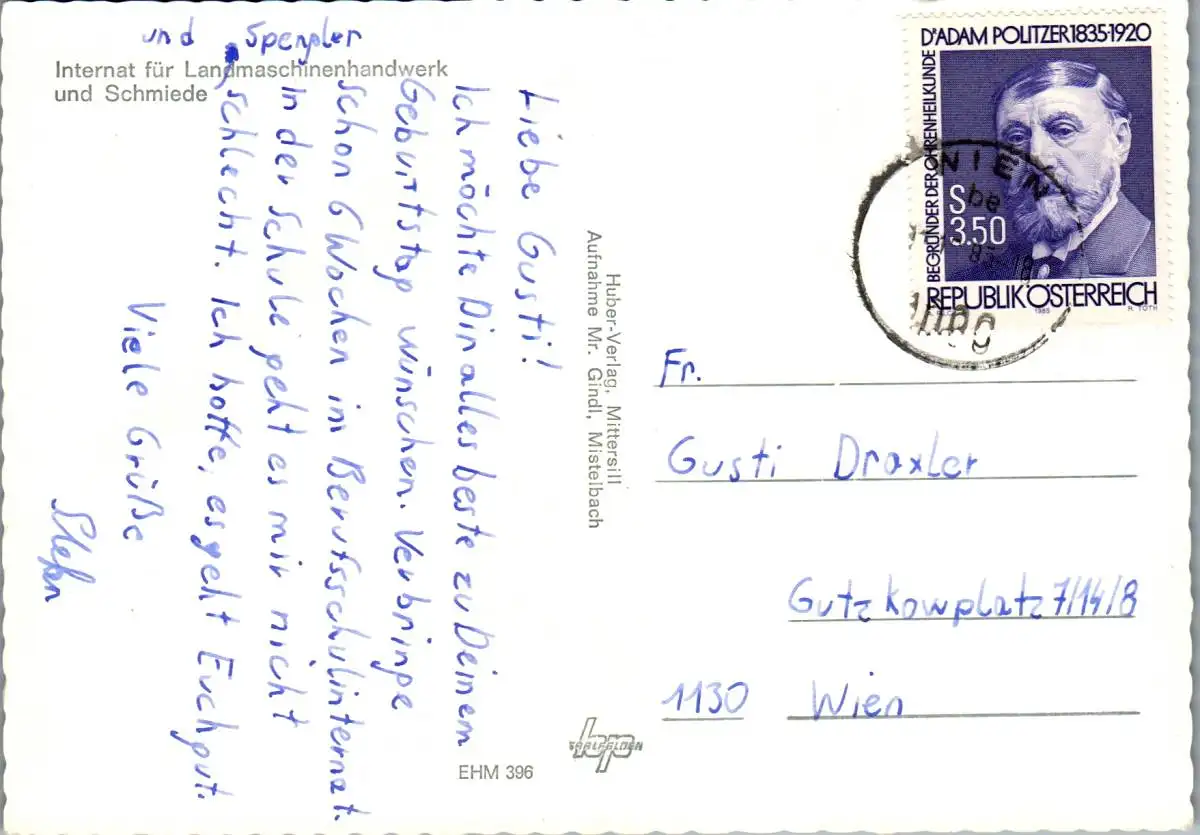 und Spengler
Internat für Landmaschinenhandwerk
und Schmiede
Liebe Gusti!
Ich möchte Dir alles beste zu Deinem
Geburtstag wünschen. Verbringe
schon 6 Wochen im Berufsschulinternat.
In der Schule geht es mir nicht
schlecht. Ich hoffe, es geht Euch gut.
Viele Grüße
Stefan
Huber-Verlag, Mittersill
Aufnahme Mr. Gindl, Mistelbach
EHM 396
SAALFELDEN
hp
D'ADAM POLITZER 1835-1920
BEGRÜNDER DER OHRENHEILKUNDE
S
3.50
REPUBLIK ÖSTERREICH
1985
R. TOTH
WIEN
be
Fr.
Gusti Draxler
Gutzkowplatz 7/14/8
1130 Wien